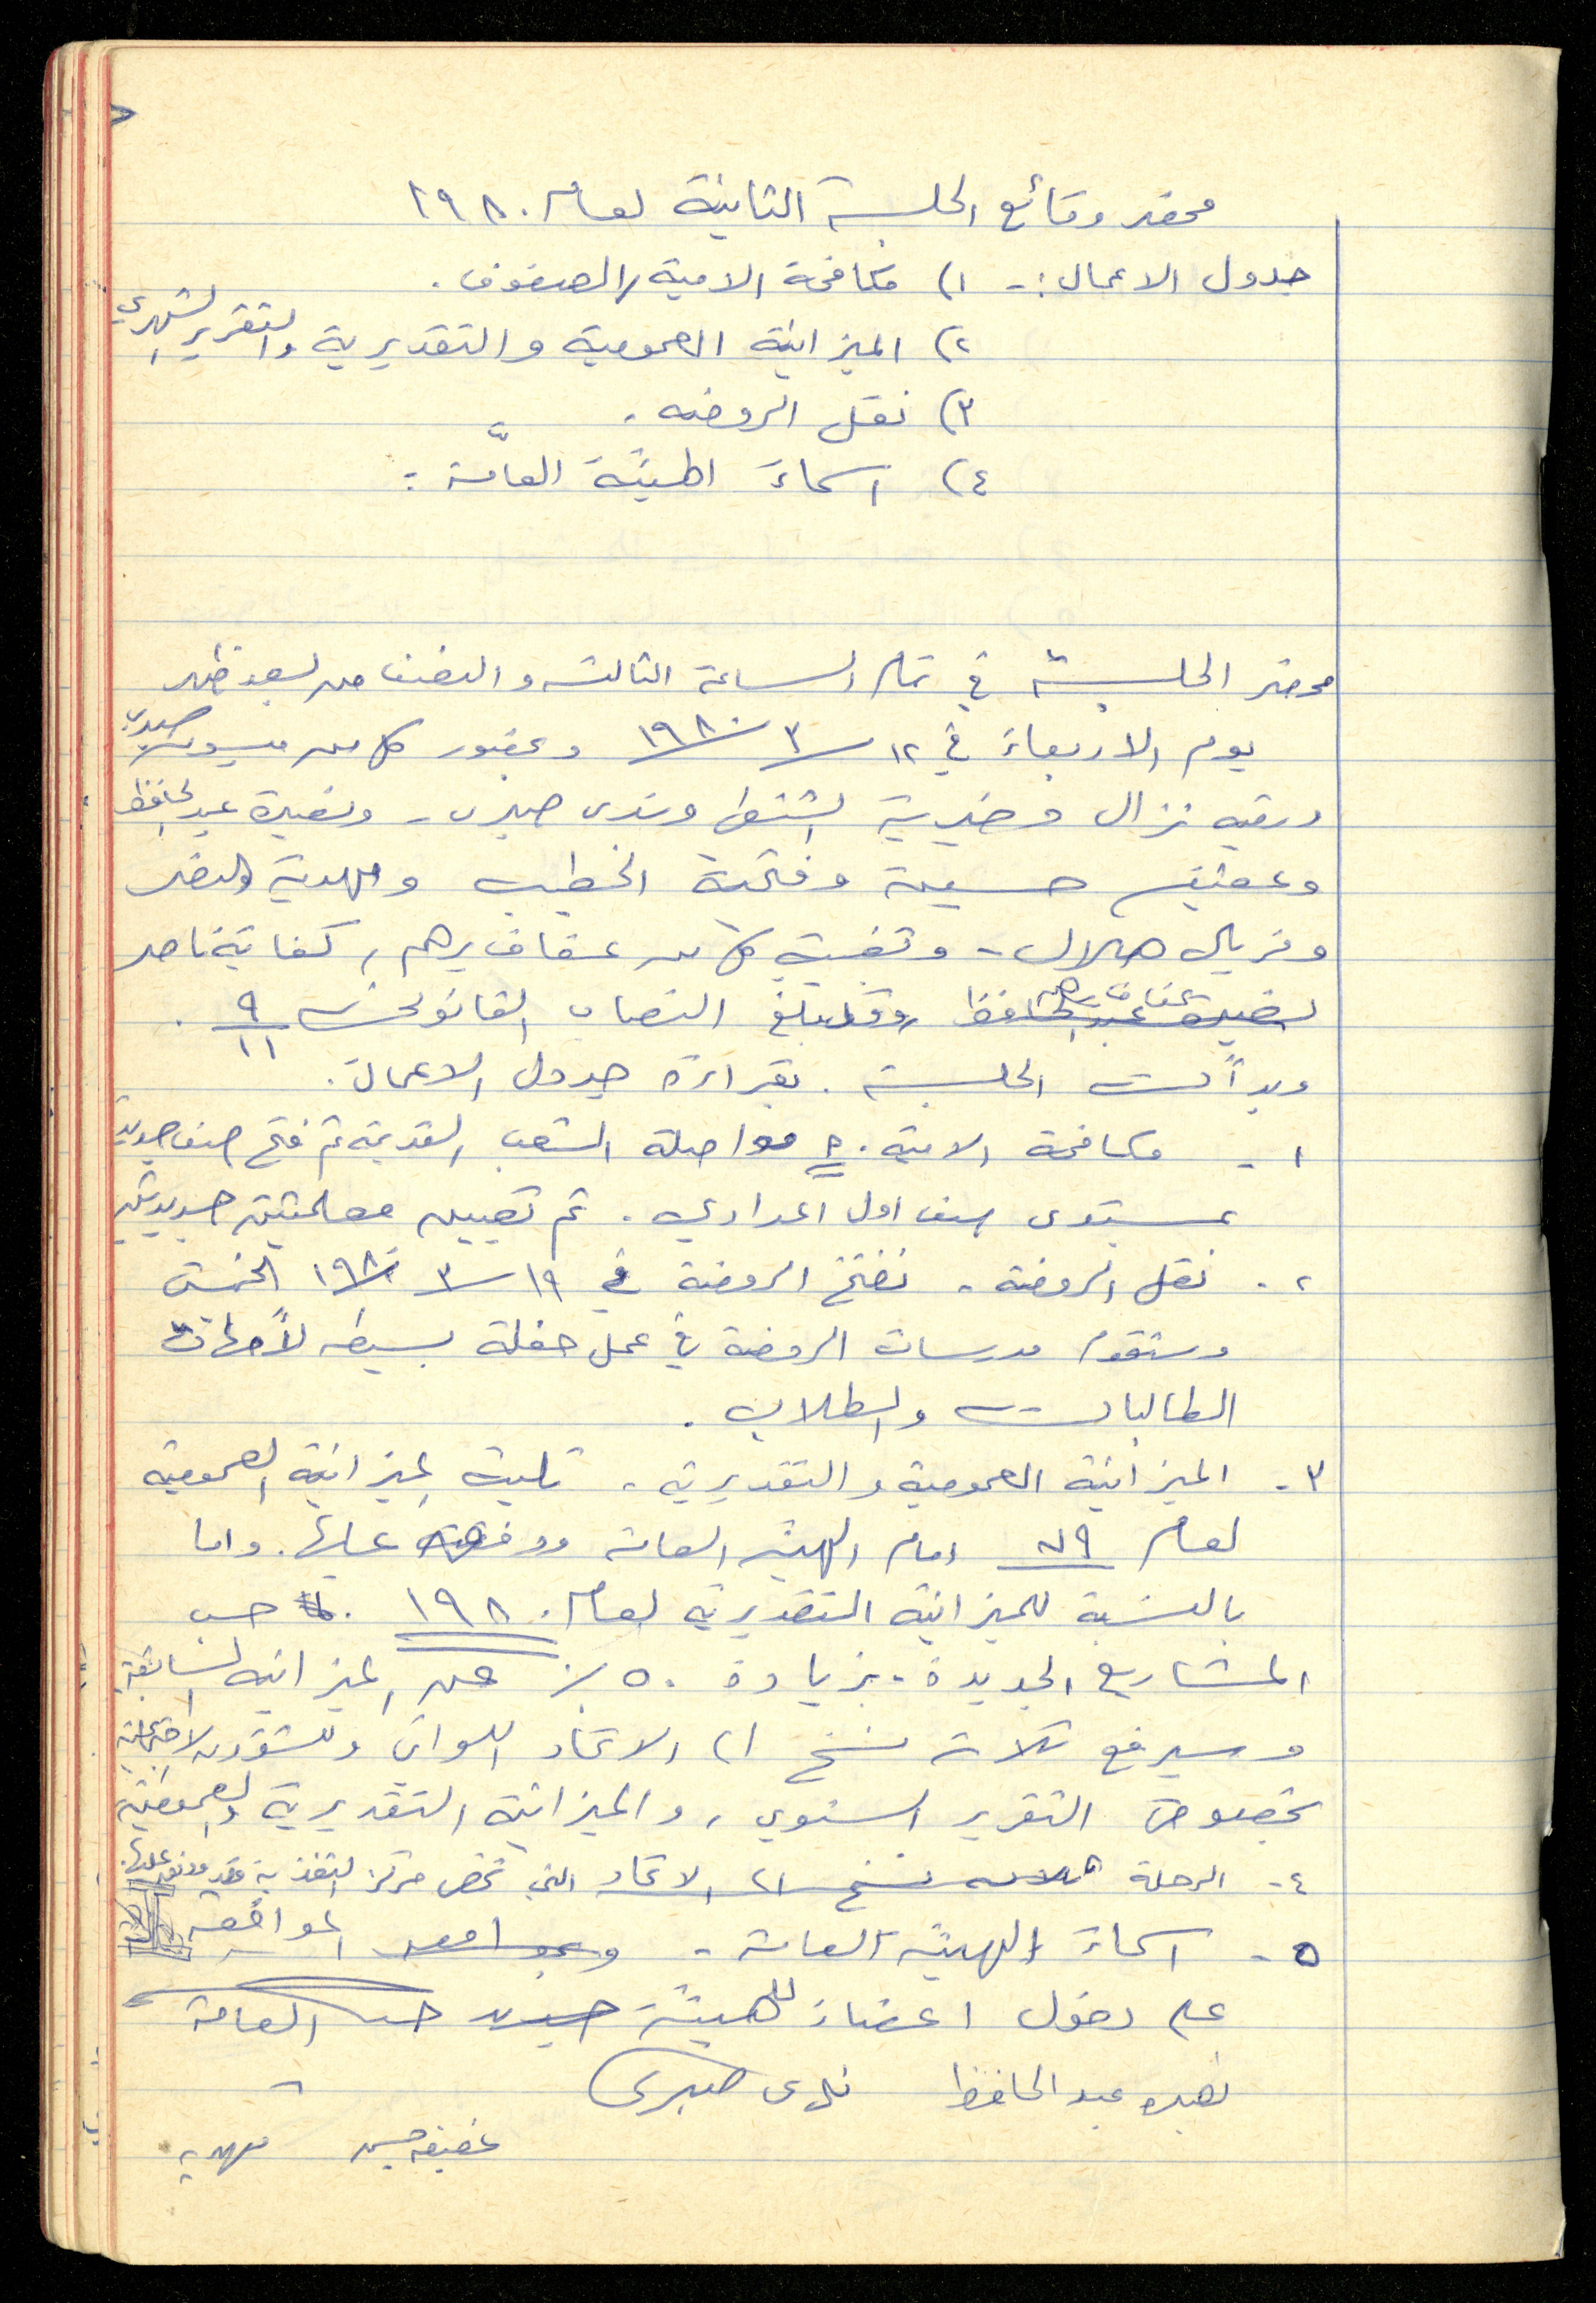 محضر وقائع الجلسة الثانية لعام ١٩٨٠
جدول الاعمال :- ١) مكافحة الامية / الصفوف .
٢) الميزانية العمومية والتقديرية والتقرير الشهري
٣) نقل الروضه .
٤) اسماء الهيئة العامة :
محضر الجلسة في تمام الساعة الثالثة والنصف من بعد ظهر
يوم الاربعاء في ١٢/٣/١٩٨٠ وبحضور كل من ميسون صبري
ورقيه نزال وخيرية الشنطي وندى صبري - ونصيرة عبد الحافظ
وعفيفه حسين وفتحية الخطيب ومهدية النصر
وفريال هلال - وتغيب كل من عفاف يرهم , كفاية ناصر
نصيرة عبد الحافظ عفاف يرهم وقد بلغ النصاب القانوني ٩/١١ .
وبدأت الجلسة . بقراءة جدول الاعمال .
١ - مكافحة الامية . مواصلة الشعب القديمة تم فتح صف جديد
بمستوى صف اول اعدادي . تم تعيين معلمتين جديدتين
٢ - نقل الروضة - نفتتح الروضة في ١٩/٣/١٩٨٠ الخميس
وستقوم مدرسات الروضة في عمل حفلة بسيطه لأمهات
الطالبات والطلاب .
٣ - الميزانية العمومية والتقديرية - تليت الميزانية العمومية
لعام ٧٩ امام الهيئة العامة ووفق عليها . واما
بالنسبة للميزانية التقديرية لعام ١٩٨٠ . حسب
المشاريع الجديدة - بزيادة ٥٠ ٪ عن الميزانيه السابقة
وسيرفع ثلاث نسخ الى الاتحاد اللوائي وللشؤون الاجتماعية
بخصوص التقرير السنوي , والميزانية التقديرية والعمومية
٤ - الرحلة ثلاث نسخ الى الاتحاد التي تخص مركز التغذية وقد ووفق عليها
٥ - اسماء الهيئة العامة - الموافقه
على دخول اعضاء للهيئة العامة
نصيره عبد الحافظ ندى صبري
عفيفه حسين مهديه